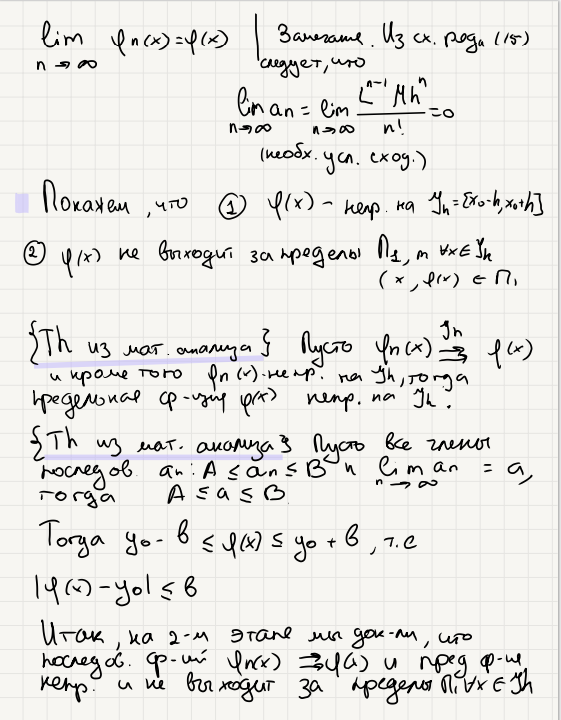 lim φn(x) = φ(x)
n→∞
Замечание. Из сх. ряда (15)
следует, что
lim an = lim L^{n-1} M h^n / n! = 0
n→∞ n→∞
(необх. усл. сход.)
Покажем, что ① φ(x) – непр. на Jh = [x0-h, x0+h]
② φ(x) не выходит за пределы П1, т ∀x∈Jh
(x, φ(x) ∈ П1
{Th из мат. анализа} Пусть φn(x) ⇉ φ(x)
Jh
и кроме того φn(x) непр. на Jh, тогда
предельная ф-ция φ(x) непр. на Jh.
{Th из мат. анализа} Пусть все члены
последов. an: A ≤ an ≤ B и lim an = a,
n→∞
тогда A ≤ a ≤ B
Тогда y0 - b ≤ φ(x) ≤ y0 + b, т.е
|φ(x) - y0| ≤ b
Итак, на 2-м этапе мы док-ли, что
последов. ф-ий φn(x) ⇉ φ(x) и пред ф-ия
непр. и не выходит за пределы П1 ∀x ∈ Jh